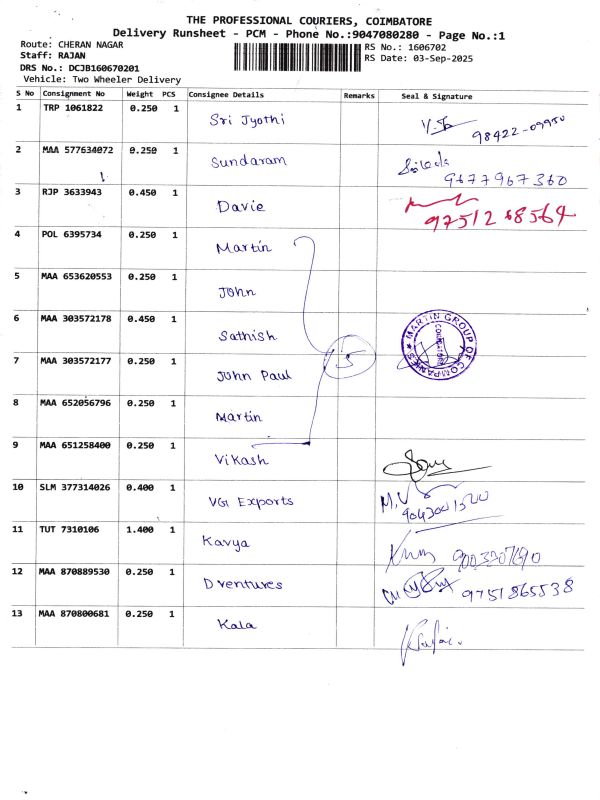 THE PROFESSIONAL COURIERS, COIMBATORE
Delivery Runsheet - PCM - Phone No.:9047080280 - Page No.:1
Route: CHERAN NAGAR RS No.: 1606702
Staff: RAJAN RS Date: 03-Sep-2025
DRS No.: DCJB160670201
Vehicle: Two Wheeler Delivery
S No Consignment No Weight PCS Consignee Details Remarks Seal & Signature
1 TRP 1061822 0.250 1 Sri Jyothi 98422-09950
2 MAA 577634072 0.250 1 Sundaram 9677967360
3 RJP 3633943 0.450 1 Davie 9751268564
4 POL 6395734 0.250 1 Martin
5 MAA 653620553 0.250 1 John
6 MAA 303572178 0.450 1 Sathish MARTIN GROUP OF COMPANIES COIMBATORE
7 MAA 303572177 0.250 1 John Paul 5
8 MAA 652056796 0.250 1 Martin
9 MAA 651258400 0.250 1 Vikash
10 SLM 377314026 0.400 1 VG Exports M.V
11 TUT 7310106 1.400 1 Kavya
12 MAA 870889530 0.250 1 Dventures 9751865538
13 MAA 870800681 0.250 1 Kala